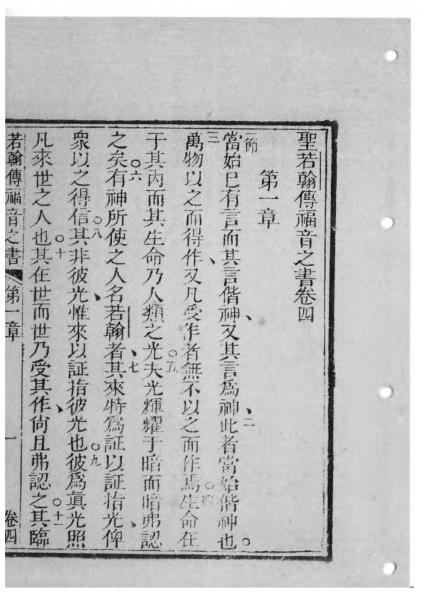 聖若翰傳福音之書卷四
第一章
一節當始已有言而其言偕神又其言為神此者當始偕神也
三萬物以之而得作又凡受作者無不以之而作焉生命在
于其內而其生命乃人類之光夫光輝耀于暗而暗弗認
之矣有神所使之人名若翰者其來特為証以証指光俾
眾以之得信其非彼光惟來以証指彼光也彼為真光照
凡來世之人也其在世而世乃受其作尚且弗認之其臨
若翰傳福音之書 第一章 一 卷四